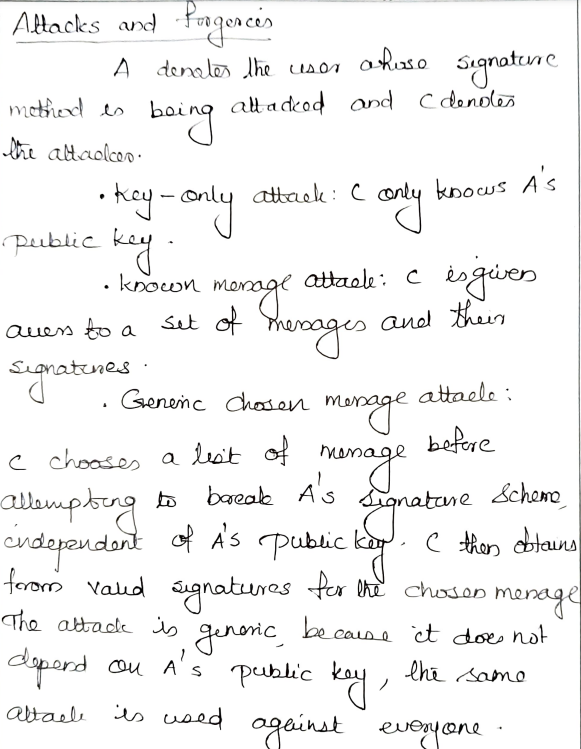 Attacks and Forgeries
A denotes the user whose signature
method is being attacked and C denotes
the attacker.
• Key-only attack: C only knows A's
public key.
• known message attack: C is given
access to a set of messages and their
signatures.
• Generic chosen message attack:
C chooses a list of message before
attempting to break A's signature scheme,
independent of A's public key. C then obtains
from valid signatures for the chosen message
The attack is generic, because it does not
depend on A's public key, the same
attack is used against everyone.